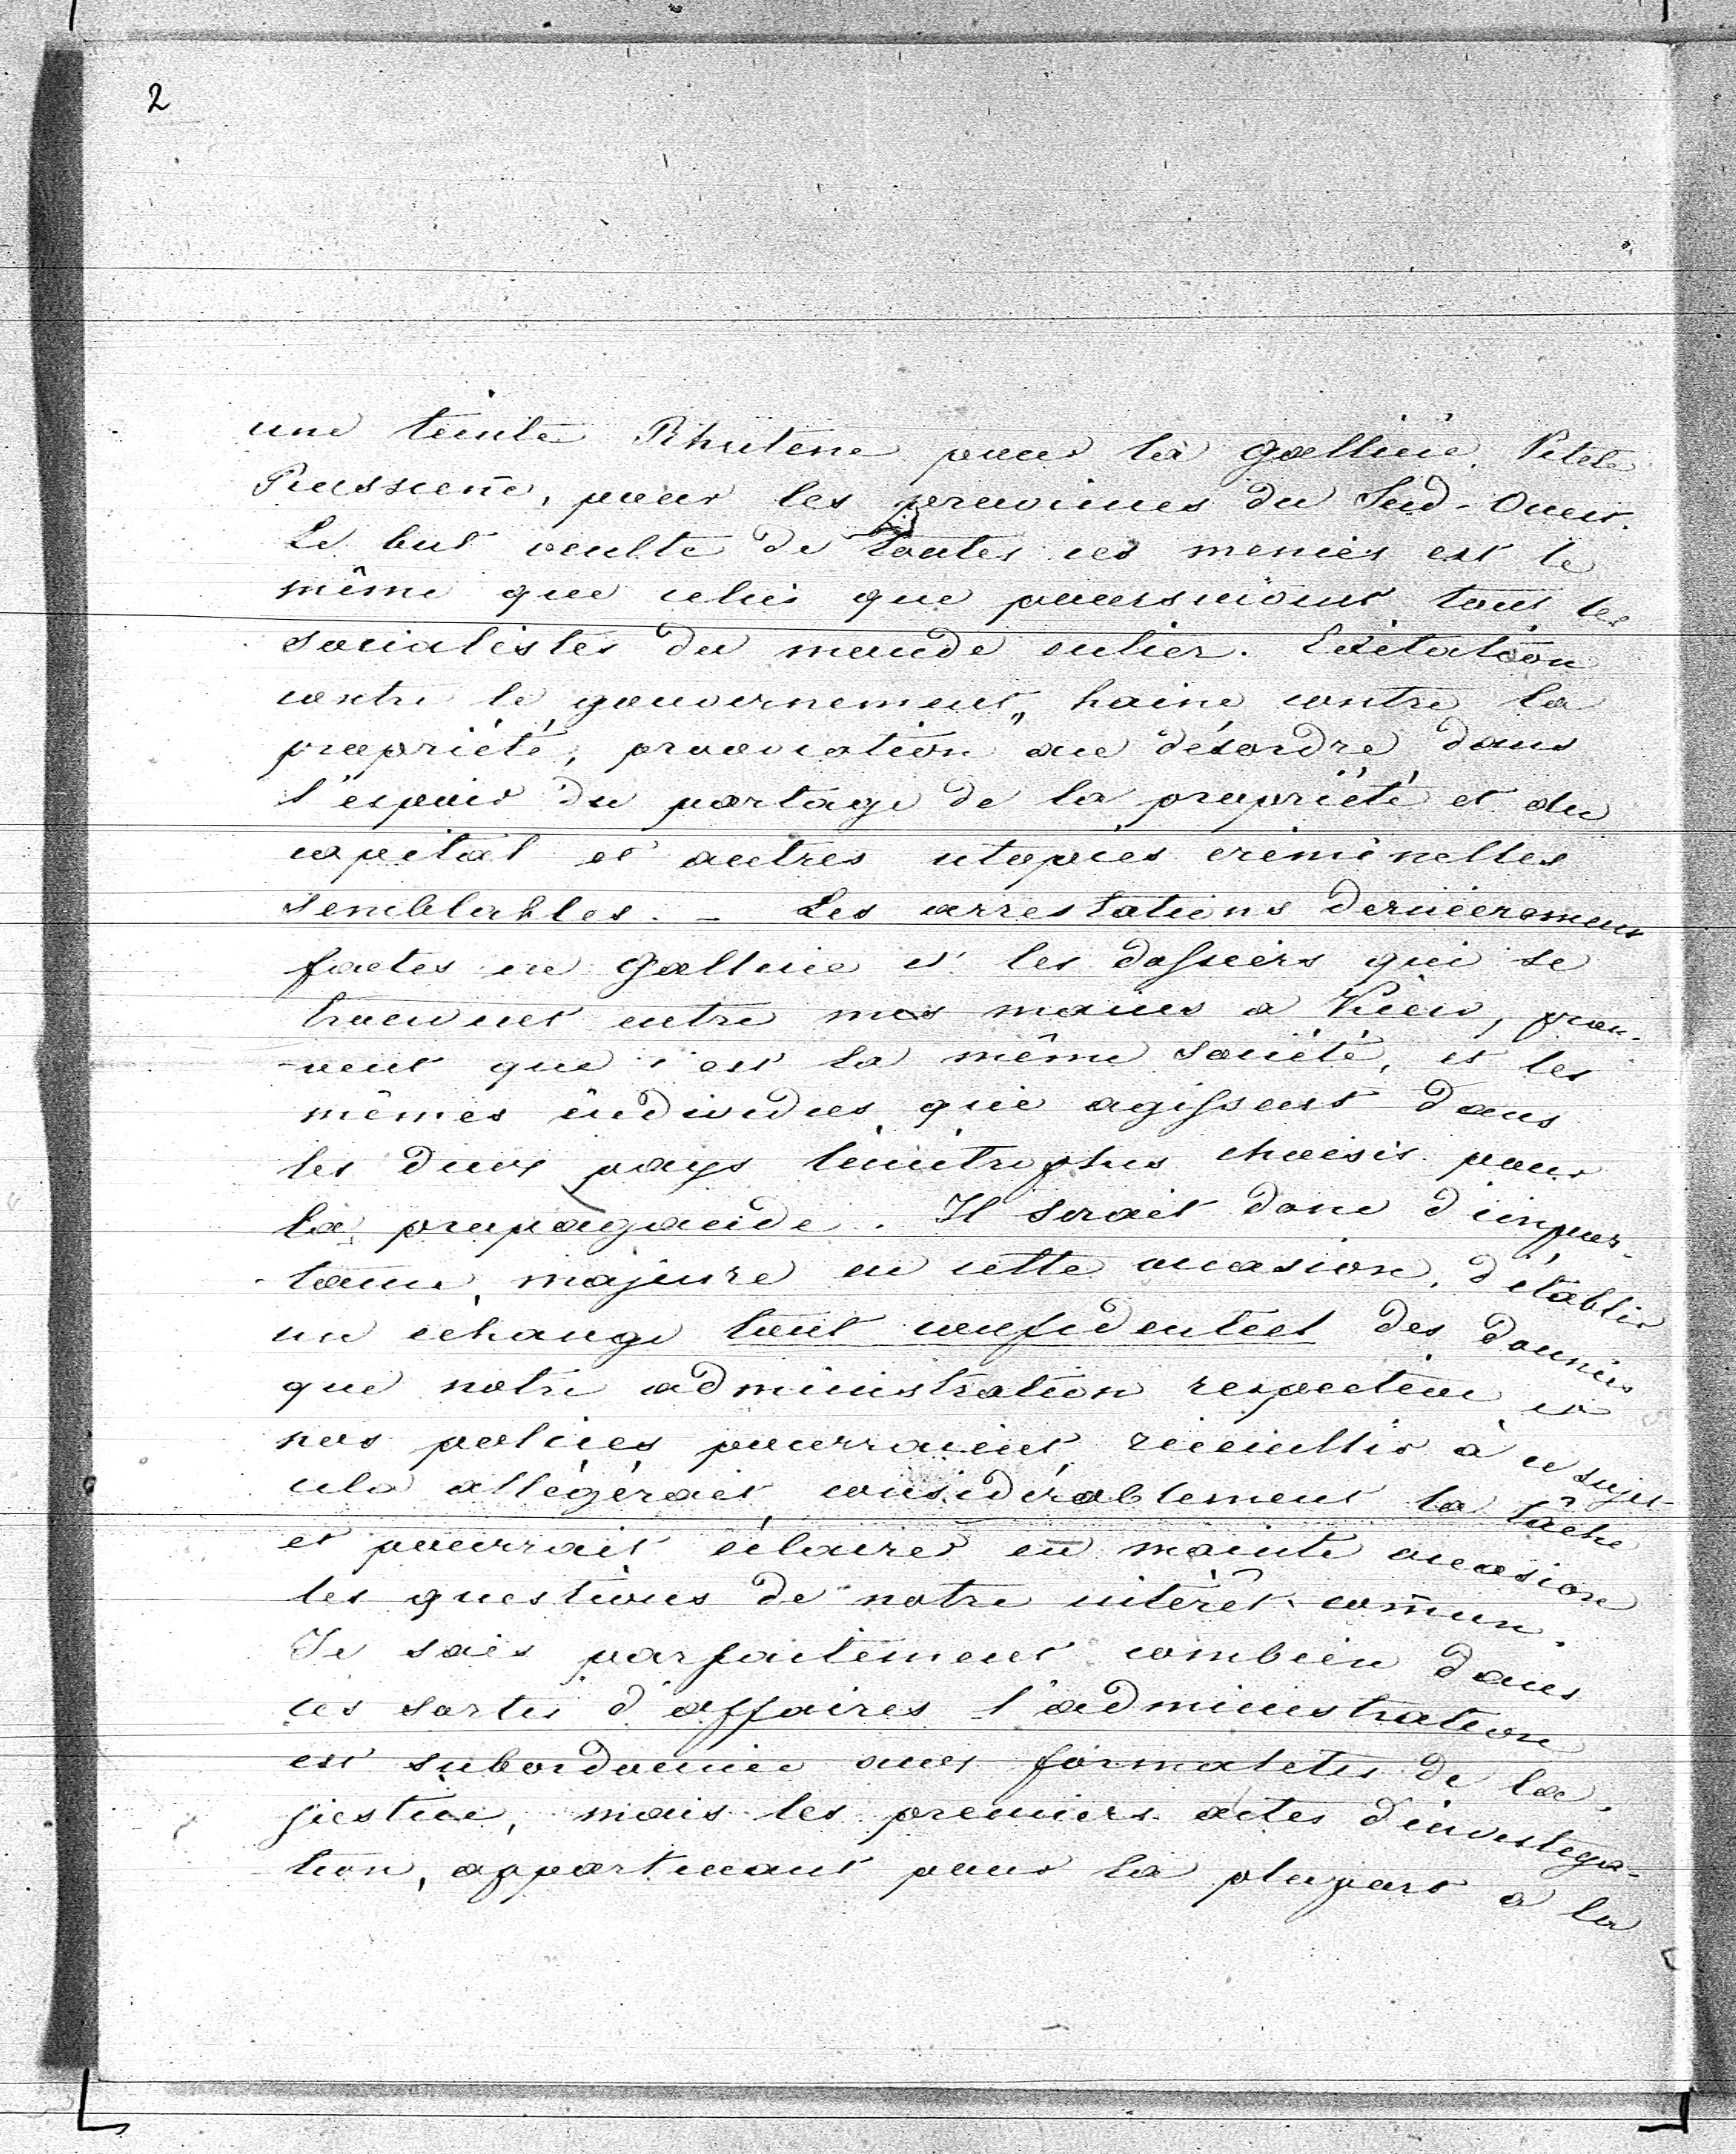 2
une teinte Rhutene pour la Gallicie, Petite
Russienne, pour les provinces du Sud-Ouest.
Le but occulte de toutes ces menées est le
même que celui que poursuivent tous les
socialistes du monde entier. Exitation
contre le gouvernement, haine contre la
propriété, provocation au désordre dans
l'espoir du partage de la propriété et du
capital et autres utopies criminelles
semblables. – Les arrestations dernièrement
faites en Gallicie et les dossiers qui se
trouvent entre mes mains a Kiew, prou-
-vent que c'est la même société, et les
mêmes individues qui agissent dans
les deux pays limitrophes choisis pour
la propagande. Il serait donc d'impor-
-tance majeure en cette occasion, d'établir
un échange tout confidentiel des données
que notre administration respective et
nos polices pourraient recueillir à ce sujet
cela allégérait considérablement la tâche
et pourrait éclairer en mainte occasion
les questions de notre intérêt commun.
Je sais parfaitement combien dans
ces sortes d'affaires l'administration
est subordonnée aux formalités de la
justice, mais les premiers actes d'investiga-
-tion, appartenant pour la plupart a la